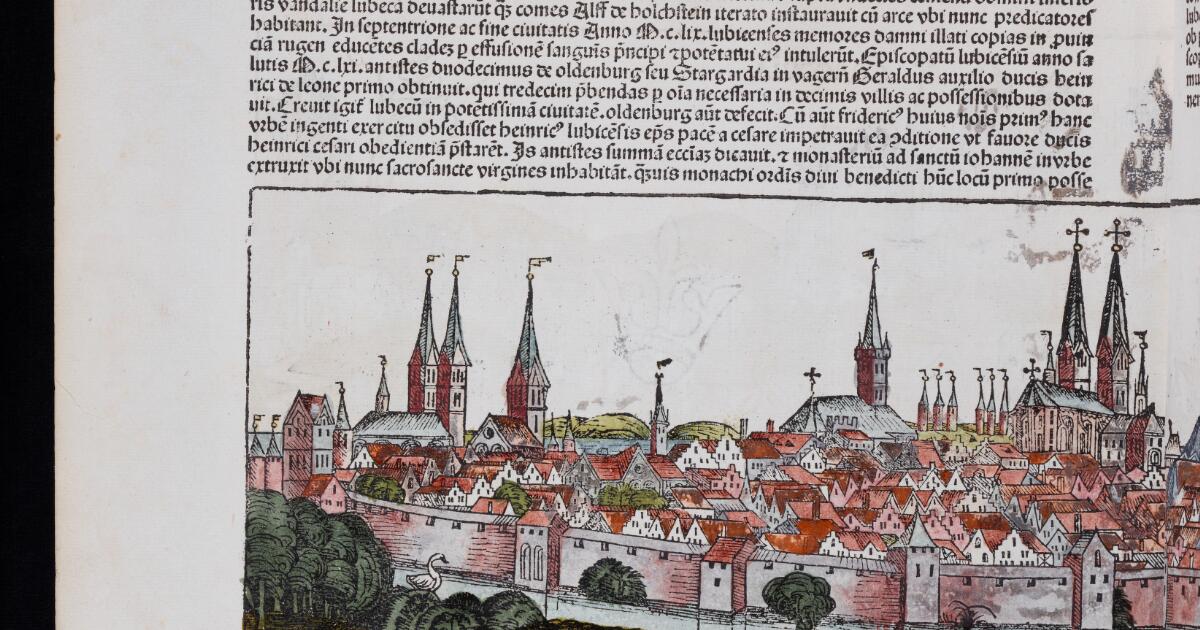 ris vandalie lubeca deuastarūt qȝ comes Alff de holchstein iterato instaurauit cū arce vbi nunc predicatores
habitant. In septentrione ac fine ciuitatis Anno M.c.lix. lubicenses memores damni illati copias in ꝓuin
ciā rugen educētes clades ꝑ effusionem sanguīs pn̄cipi ⁊ potētatui eiꝰ intulerūt. Episcopatū lubicēsiū anno sa
lutis M.c.lxi. antistes duodecimus de oldenburg seu Stargardia in vagerñ Geraldus auxilio ducis hein
rici de leone primo obtinuit. qui tredecim p̄bendas ꝓ oīa necessaria in decimis villis ac possessionibus dota
uit. Creuit igit̄ lubecū in potētissimā ciuitatē. oldenburg aūt defecit. Cū aūt fridericꝰ huius noīs primꝰ hanc
vrbē ingenti exercitu obsedisset heinricꝰ lubicēsis ep̄s pacē a cesare impetrauit ea ↄditione vt fauore ducis
heinrici cesari obedientiā p̄starēt. Is antistes summā ecciaȝ dicauit. ⁊ monasteriū ad sanctū iohannē in vrbe
extruxit vbi nunc sacrosancte virgines inhabitāt. qȝuis monachi ordīs diui benedicti hūc locū primo posse